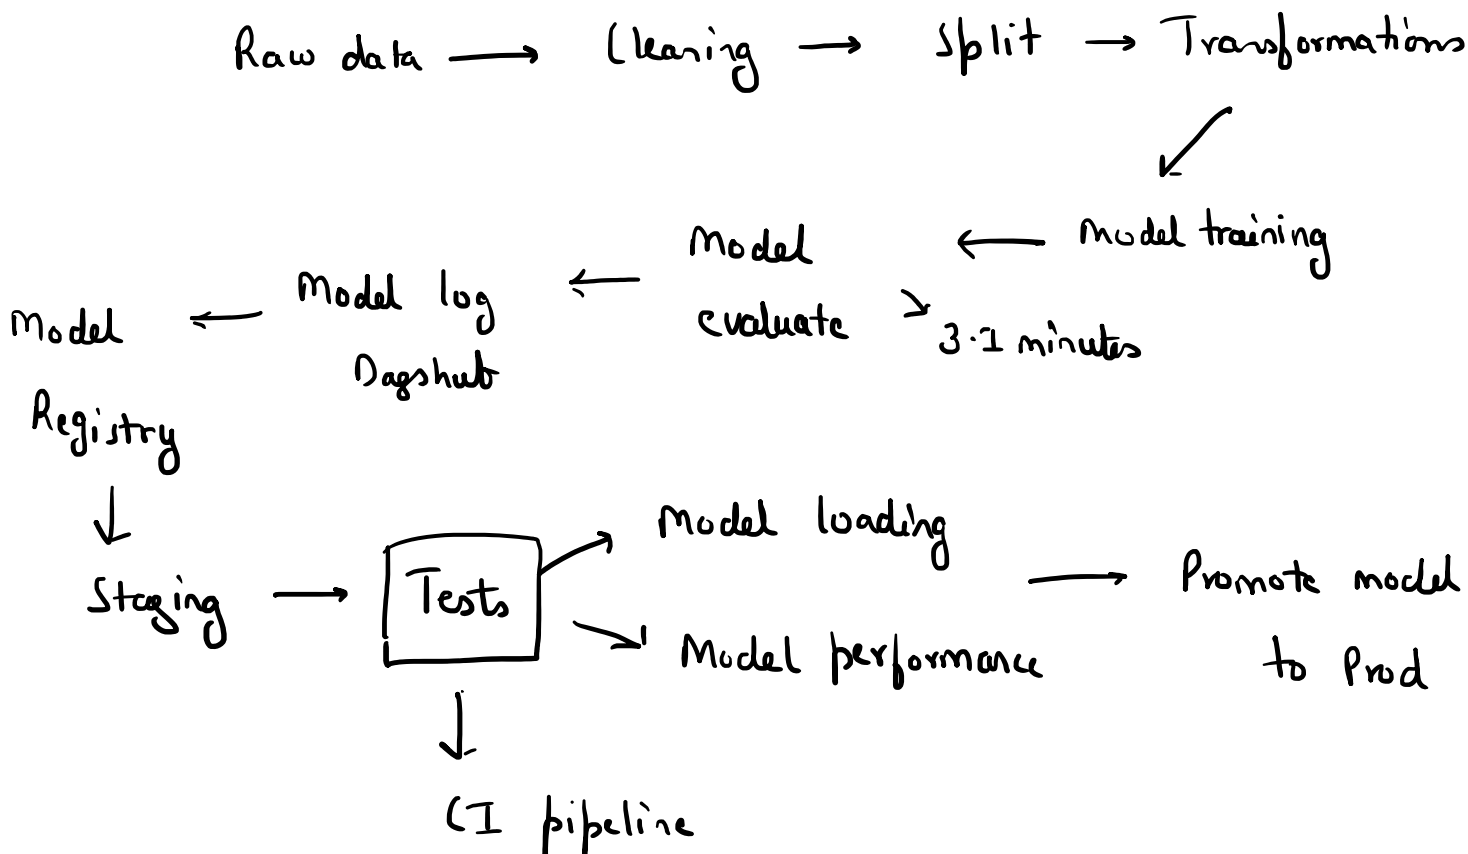 Raw data → Cleaning → Split → Transformations
Model training
Model
evaluate
3.1 minutes
Model log
Dagshub
Model
Registry
Staging
Tests
Model loading
Model performance
Promote model
to Prod
CI pipeline